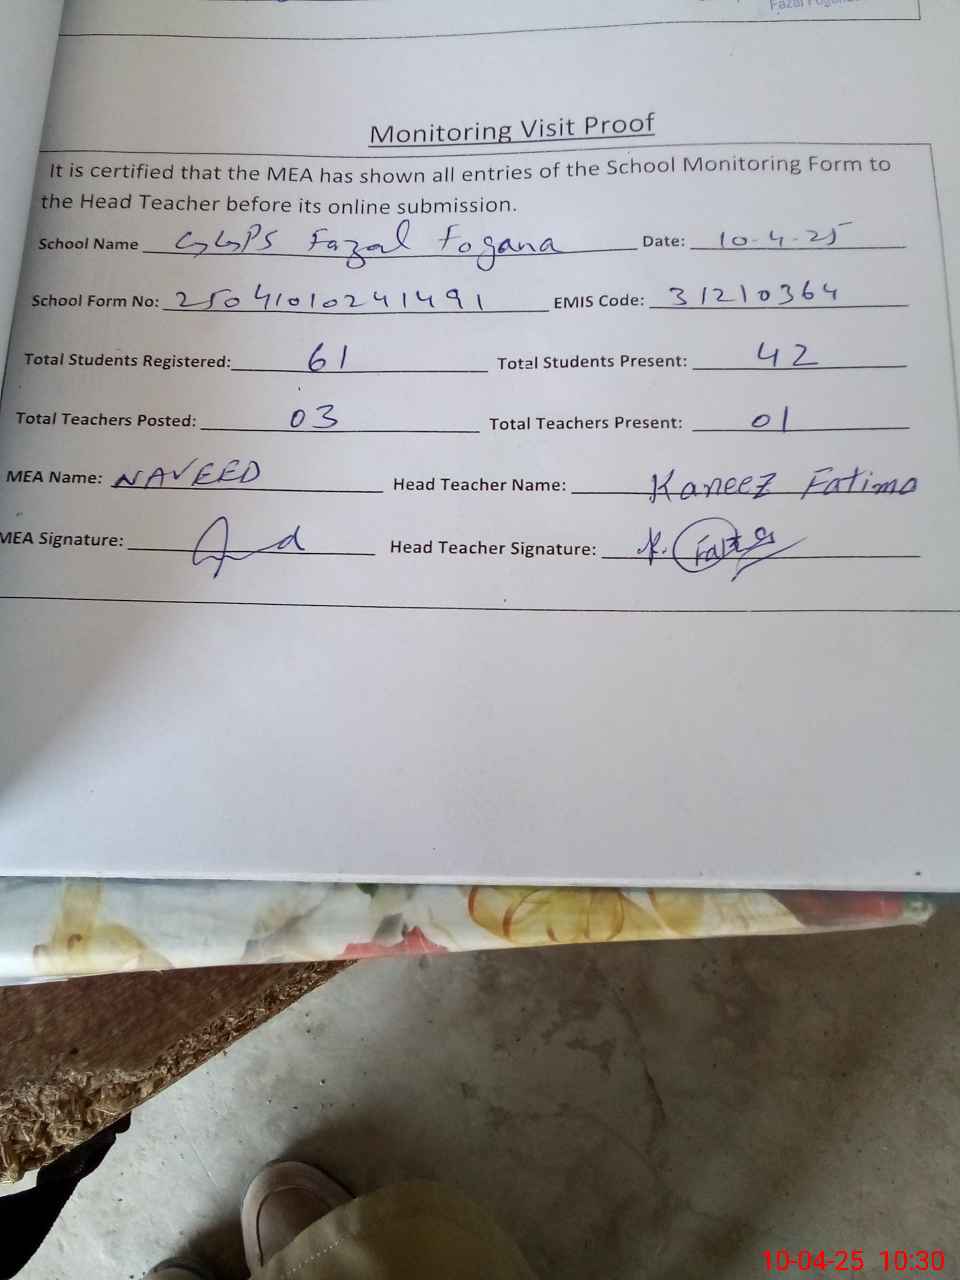 Fazal Fogana
Monitoring Visit Proof
It is certified that the MEA has shown all entries of the School Monitoring Form to
the Head Teacher before its online submission.
School Name GGPS Fazal Fogana Date: 10-4-25
School Form No: 25041010241491 EMIS Code: 31210364
Total Students Registered: 61 Total Students Present: 42
Total Teachers Posted: 03 Total Teachers Present: 01
MEA Name: NAVEED Head Teacher Name: Kaneez Fatima
MEA Signature: Head Teacher Signature:
10-04-25 10:30